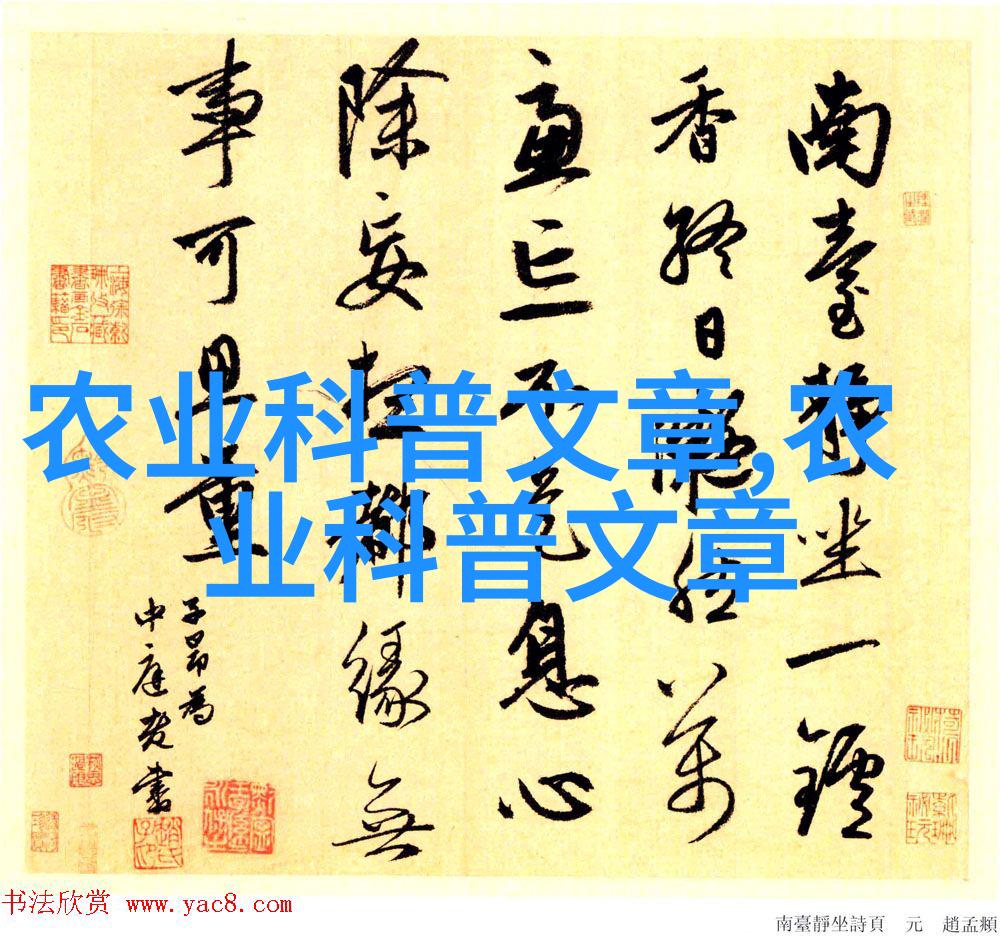 南臺静坐一鑪
香終日凝然萬
慮亡不是息心
除妄想都緣無
事可思量
子昂為
中庭老書
农业科普文章,农
业科普文章
书法欣赏 www.yac8.com
南臺靜坐詩頁 元 趙孟頫